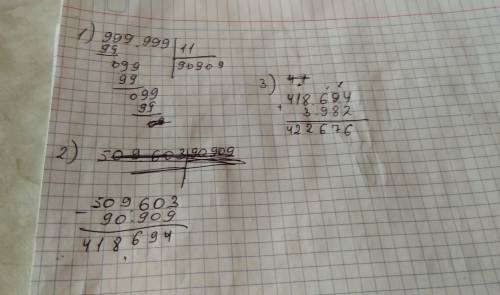 1) 999.999 | 11
99 | 90909
099
99
099
99
2) 509 603 | 90909
- 509603
90.909
418694
3) 47
418.694
+ 3.982
422676